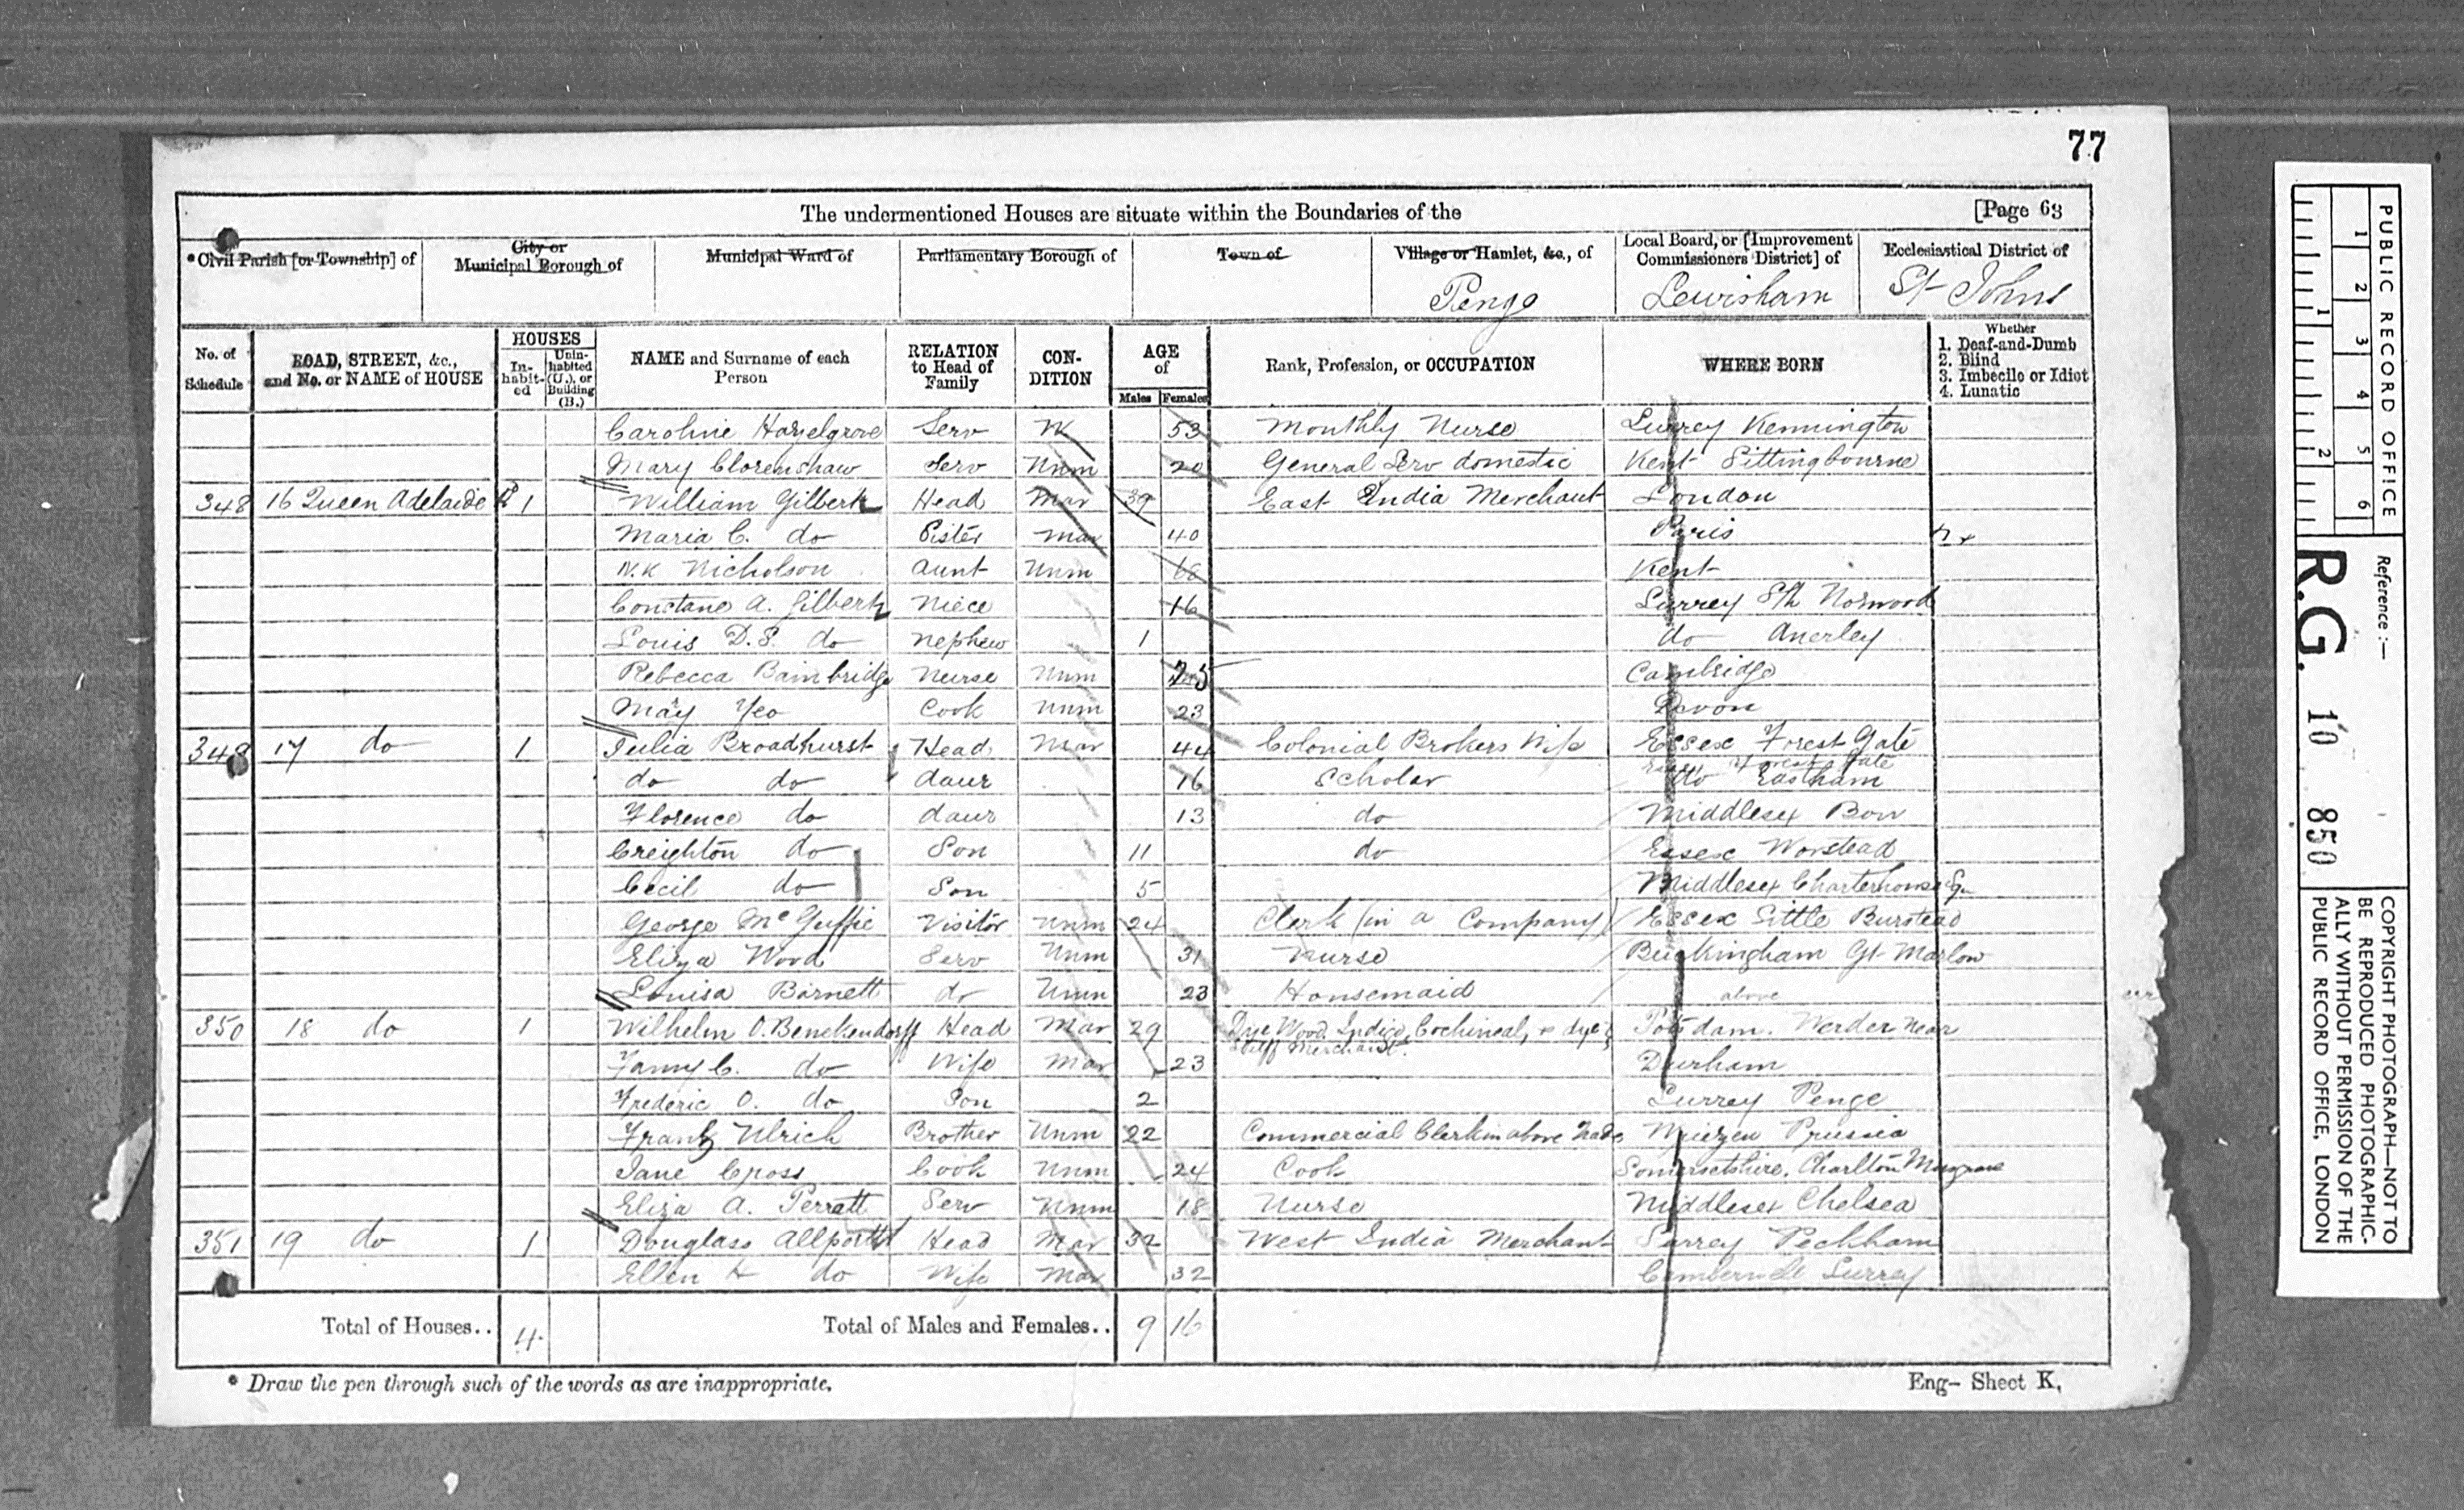 77
The undermentioned Houses are situate within the Boundaries of the [Page 63
*Civil Parish [or Township] of
City or Municipal Borough of
Municipal Ward of
Parliamentary Borough of
Town of
Village or Hamlet, &c., of
Penge
Local Board, or [Improvement Commissioners District] of
Lewisham
Ecclesiastical District of
St Johns
No. of Schedule
ROAD, STREET, &c., and No. or NAME of HOUSE
HOUSES
In-habit-ed
Unin-habited (U.), or Building (B.)
NAME and Surname of each Person
RELATION to Head of Family
CON-DITION
AGE of
Males Females
Rank, Profession, or OCCUPATION
WHERE BORN
Whether
1. Deaf-and-Dumb
2. Blind
3. Imbecile or Idiot
4. Lunatic
Caroline Hazelgrove Serv W 53 Monthly Nurse Surrey Kennington
Mary Clorenshaw Serv Unm 20 General Serv domestic Kent Sittingbourne
348 16 Queen Adelaide Rd 1 William Gilbert Head Mar 39 East India Merchant London
Maria C. do Sister Mar 40 Paris
N.K Nicholson Aunt Unm 68 Kent
Constane A. Gilbert Niece 16 Surrey Sth Norwood
Louis D.S. do Nephew 1 do Anerley
Rebecca Bambridge Nurse Unm 25 Cambridge
Mary Yeo Cook Unm 23 Devon
348 17 do 1 Julia Broadhurst Head Mar 44 Colonial Brokers Wife Essex Forest Gate
do do daur 16 Scholar do Eastham
Florence do daur 13 do Middlesex Bow
Creighton do Son 11 do Essex Wanstead
Cecil do Son 5 Middlesex Charterhouse Sq
George McGuffie Visitor Unm 24 Clerk (in a Company) Essex Little Burstead
Eliza Wood Serv Unm 31 Nurse Buckingham Gt Marlow
Louisa Barnett do Unm 23 Housemaid above
350 18 do 1 Wilhelm O. Benekendorff Head Mar 29 Dye Wood Indigo, Cochineal, & dye Stuff Merchant. Potsdam. Werder near
Fanny C. do Wife Mar 23 Durham
Frederic O. do Son 2 Surrey Penge
Frank Ulrich Brother Unm 22 Commercial Clerk in above Trade Wriezen Prussia
Jane Cross Cook Unm 24 Cook Somersetshire. Charlton Musgrove
Eliza A. Perratt Serv Unm 18 Nurse Middlesex Chelsea
351 19 do 1 Douglass Allport Head Mar 32 West India Merchant Surrey Peckham
Ellen H do Wife Mar 32 Camberwell Surrey
Total of Houses.. 4 Total of Males and Females.. 9 16
* Draw the pen through such of the words as are inappropriate.
Eng- Sheet K.
PUBLIC RECORD OFFICE
1 2 3 4 5 6
1 2
Reference :—
R.G. 10 850
COPYRIGHT PHOTOGRAPH—NOT TO
BE REPRODUCED PHOTOGRAPHIC-
ALLY WITHOUT PERMISSION OF THE
PUBLIC RECORD OFFICE, LONDON